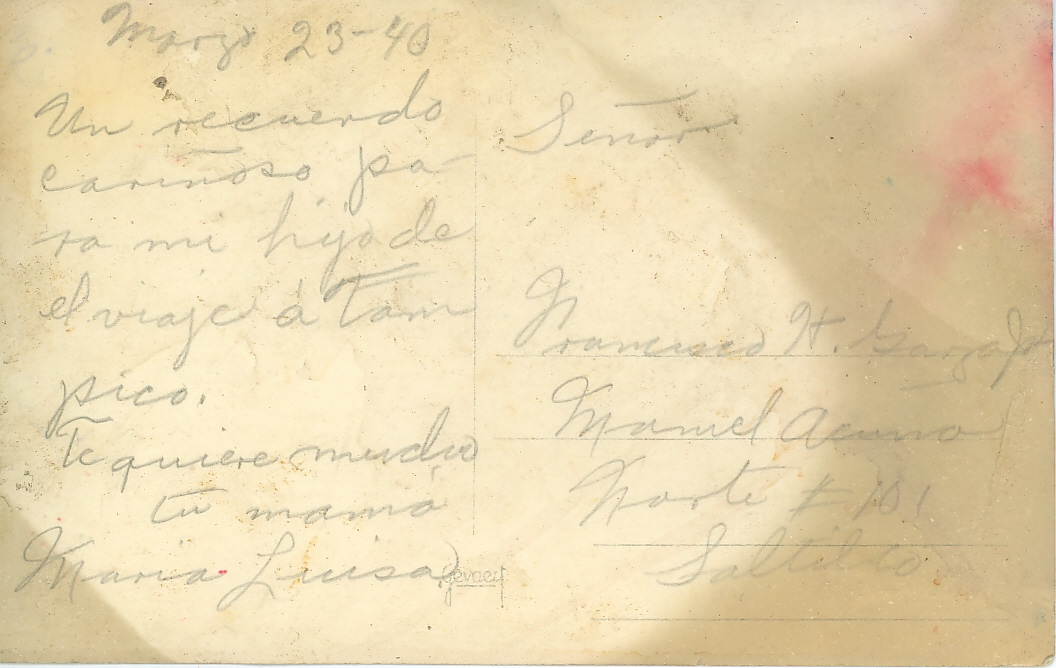 Marzo 23-40
Un recuerdo
cariñoso pa-
ra mi hijo de
el viaje á Tam
pico.
Te quiere mucho
tu mamá
Maria Luisa
Señor
Francisco H. Garza Jr
Manuel Acuña
Norte # 101
Saltillo
Gevaert